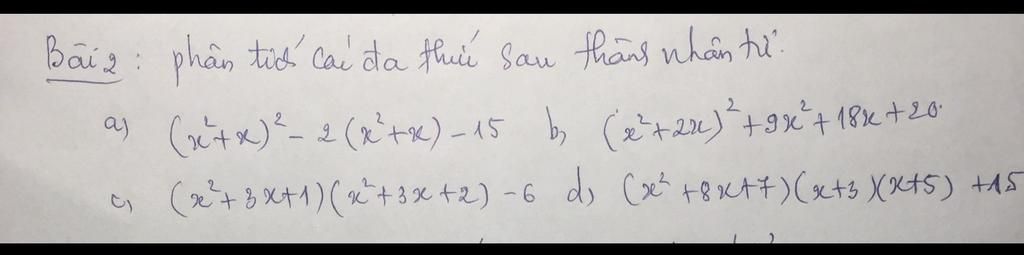 Bài 2: phân tích các đa thức sau thành nhân tử.
a) (x²+x)² - 2(x²+x) - 15 b, (x²+2x)² + 9x² + 18x + 20.
c, (x²+3x+1)(x²+3x+2) - 6 d, (x²+8x+7)(x+3)(x+5) + 15